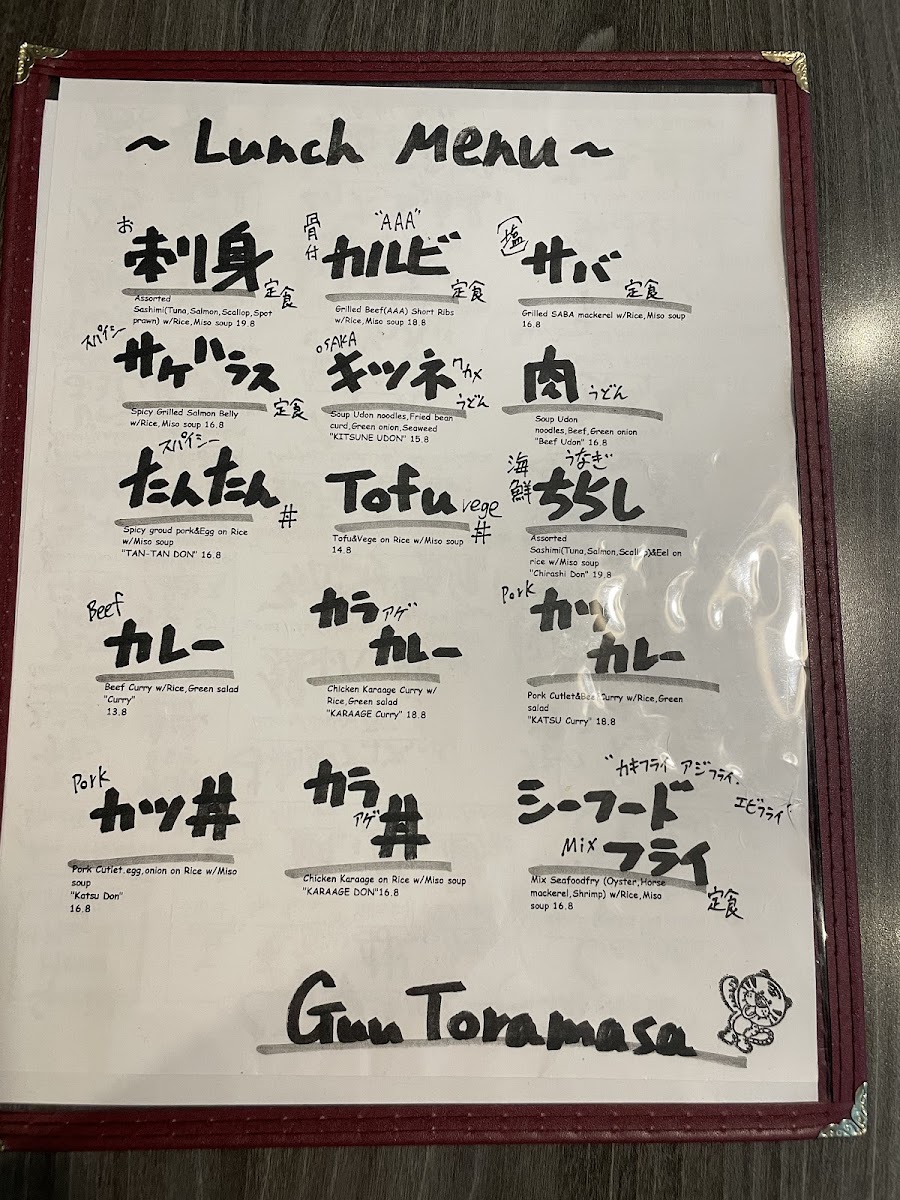 ~ Lunch Menu ~
お刺身定食
Assorted
Sashimi(Tuna,Salmon,Scallop,Spot
prawn) w/Rice, Miso soup 19.8
骨付 "AAA"
カルビ定食
Grilled Beef(AAA) Short Ribs
w/Rice,Miso soup 18.8
(塩)サバ定食
Grilled SABA mackerel w/Rice,Miso soup
16.8
スパイシー
サケハラス定食
Spicy Grilled Salmon Belly
w/Rice, Miso soup 16.8
OSAKA
キツネ ワカメ
うどん
Soup Udon noodles,Fried bean
curd,Green onion,Seaweed
"KITSUNE UDON" 15.8
肉うどん
Soup Udon
noodles,Beef,Green onion
"Beef Udon" 16.8
スパイシー
たんたん丼
Spicy groud pork&Egg on Rice
w/Miso soup
"TAN-TAN DON" 16.8
Tofu vege
丼
Tofu&Vege on Rice w/Miso soup
14.8
海鮮 うなぎ
ちらし
Assorted
Sashimi(Tuna,Salmon,Scallop)&Eel on
rice w/Miso soup
"Chirashi Don" 19.8
Beef
カレー
Beef Curry w/Rice,Green salad
"Curry"
13.8
カラアゲ
カレー
Chicken Karaage Curry w/
Rice,Green salad
"KARAAGE Curry" 18.8
Pork
カツ
カレー
Pork Cutlet&Beef Curry w/Rice,Green
salad
"KATSU Curry" 18.8
Pork
カツ丼
Pork Cutlet.egg,onion on Rice w/Miso
soup
"Katsu Don"
16.8
カラアゲ
丼
Chicken Karaage on Rice w/Miso soup
"KARAAGE DON"16.8
"カキフライ アジフライ.
エビフライ"
シーフード
Mix フライ
定食
Mix Seafoodfry (Oyster,Horse
mackerel,Shrimp) w/Rice,Miso
soup 16.8
Guu Toramasa